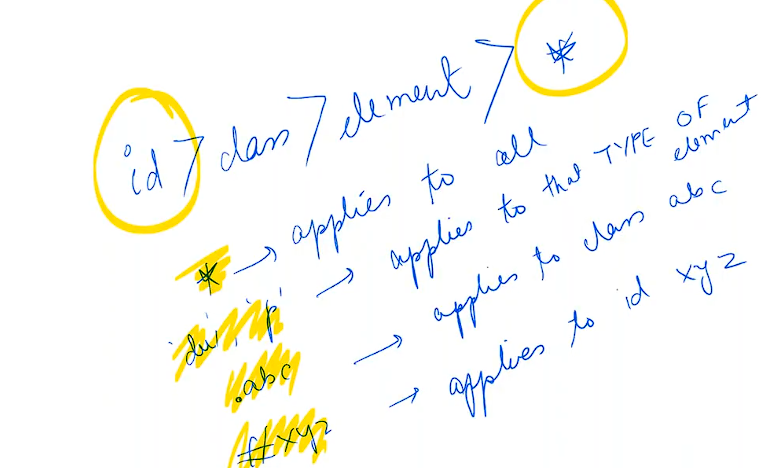 id > class > element > *
* → applies to all
'div', 'p' → applies to that TYPE OF element
.abc → applies to class abc
#xyz → applies to id xyz